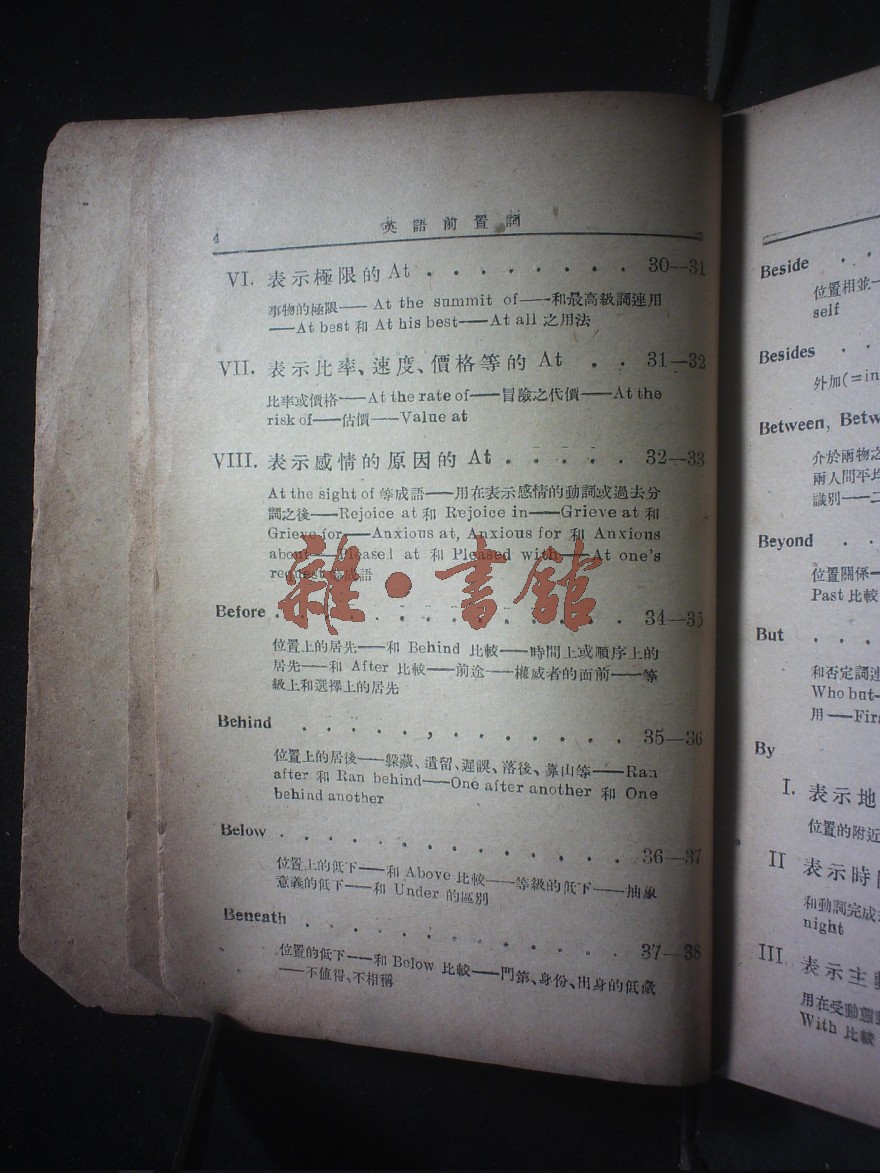 4
英語前置詞
VI. 表示極限的 At . . . . . . . . 30—31
事物的極限—— At the summit of——和最高級詞連用
——At best 和 At his best——At all 之用法
VII. 表示比率、速度、價格等的 At . . 31—32
比率或價格——At the rate of——冒險之代價——At the
risk of——估價——Value at
VIII. 表示感情的原因的 At . . . . . 32—33
At the sight of 等成語——用在表示感情的動詞或過去分
詞之後——Rejoice at 和 Rejoice in——Grieve at 和
Grieve for——Anxious at, Anxious for 和 Anxious
about——Pleased at 和 Pleased with——At one's
request 等成語
雜·書館
Before . . . . . . . . . . . . 34—35
位置上的居先——和 Behind 比較——時間上或順序上的
居先——和 After 比較——前途——權威者的面前——等
級上和選擇上的居先
Behind . . . . . . . . . . . . 35—36
位置上的居後——躲藏、遺留、遲誤、落後、靠山等——Ran
after 和 Ran behind——One after another 和 One
behind another
Below . . . . . . . . . . . . . 36—37
位置上的低下——和 Above 比較——等級的低下——抽象
意義的低下——和 Under 的區別
Beneath . . . . . . . . . . . . 37—38
位置的低下——和 Below 比較——門第、身份、出身的低微
——不值得、不相稱
Beside . . .
位置相並—
self
Besides . .
外加(=in
Between, Betw
介於兩物之
兩人間平均
識別——二
Beyond . .
位置關係—
Past 比較
But . . . .
和否定詞連
Who but—
用——Firs
By
I. 表示地
位置的附近
II 表示時間
和動詞完成
night
III. 表示主動
用在受動態動
With 比較